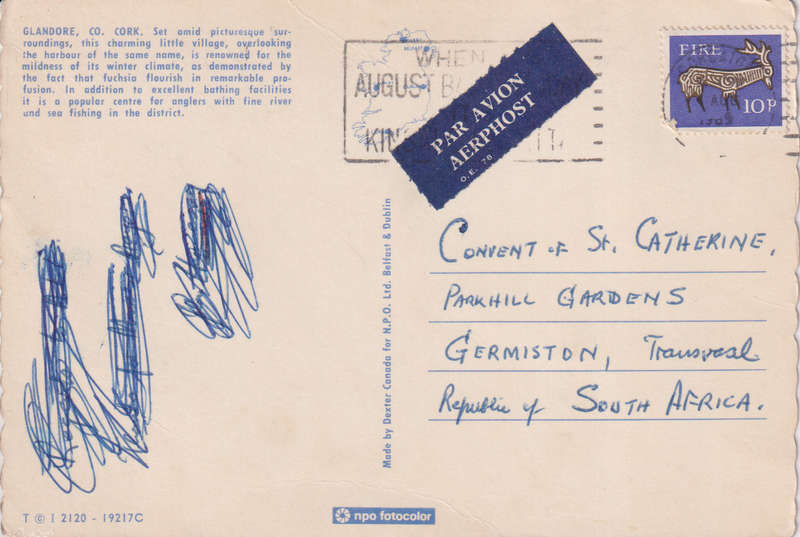 GLANDORE, CO. CORK. Set amid picturesque sur-
roundings, this charming little village, overlooking
the harbour of the same name, is renowned for the
mildness of its winter climate, as demonstrated by
the fact that fuchsia flourish in remarkable pro-
fusion. In addition to excellent bathing facilities
it is a popular centre for anglers with fine river
and sea fishing in the district.
WHEN
AUGUST
PAR AVION
AERPHOST
O.E. 78
EIRE
10p
Made by Dexter Canada for N.P.O. Ltd. Belfast & Dublin
CONVENT of St. CATHERINE,
PARKHILL GARDENS
GERMISTON, Transvaal
Republic of SOUTH AFRICA.
T © I 2120 - 19217C
npo fotocolor